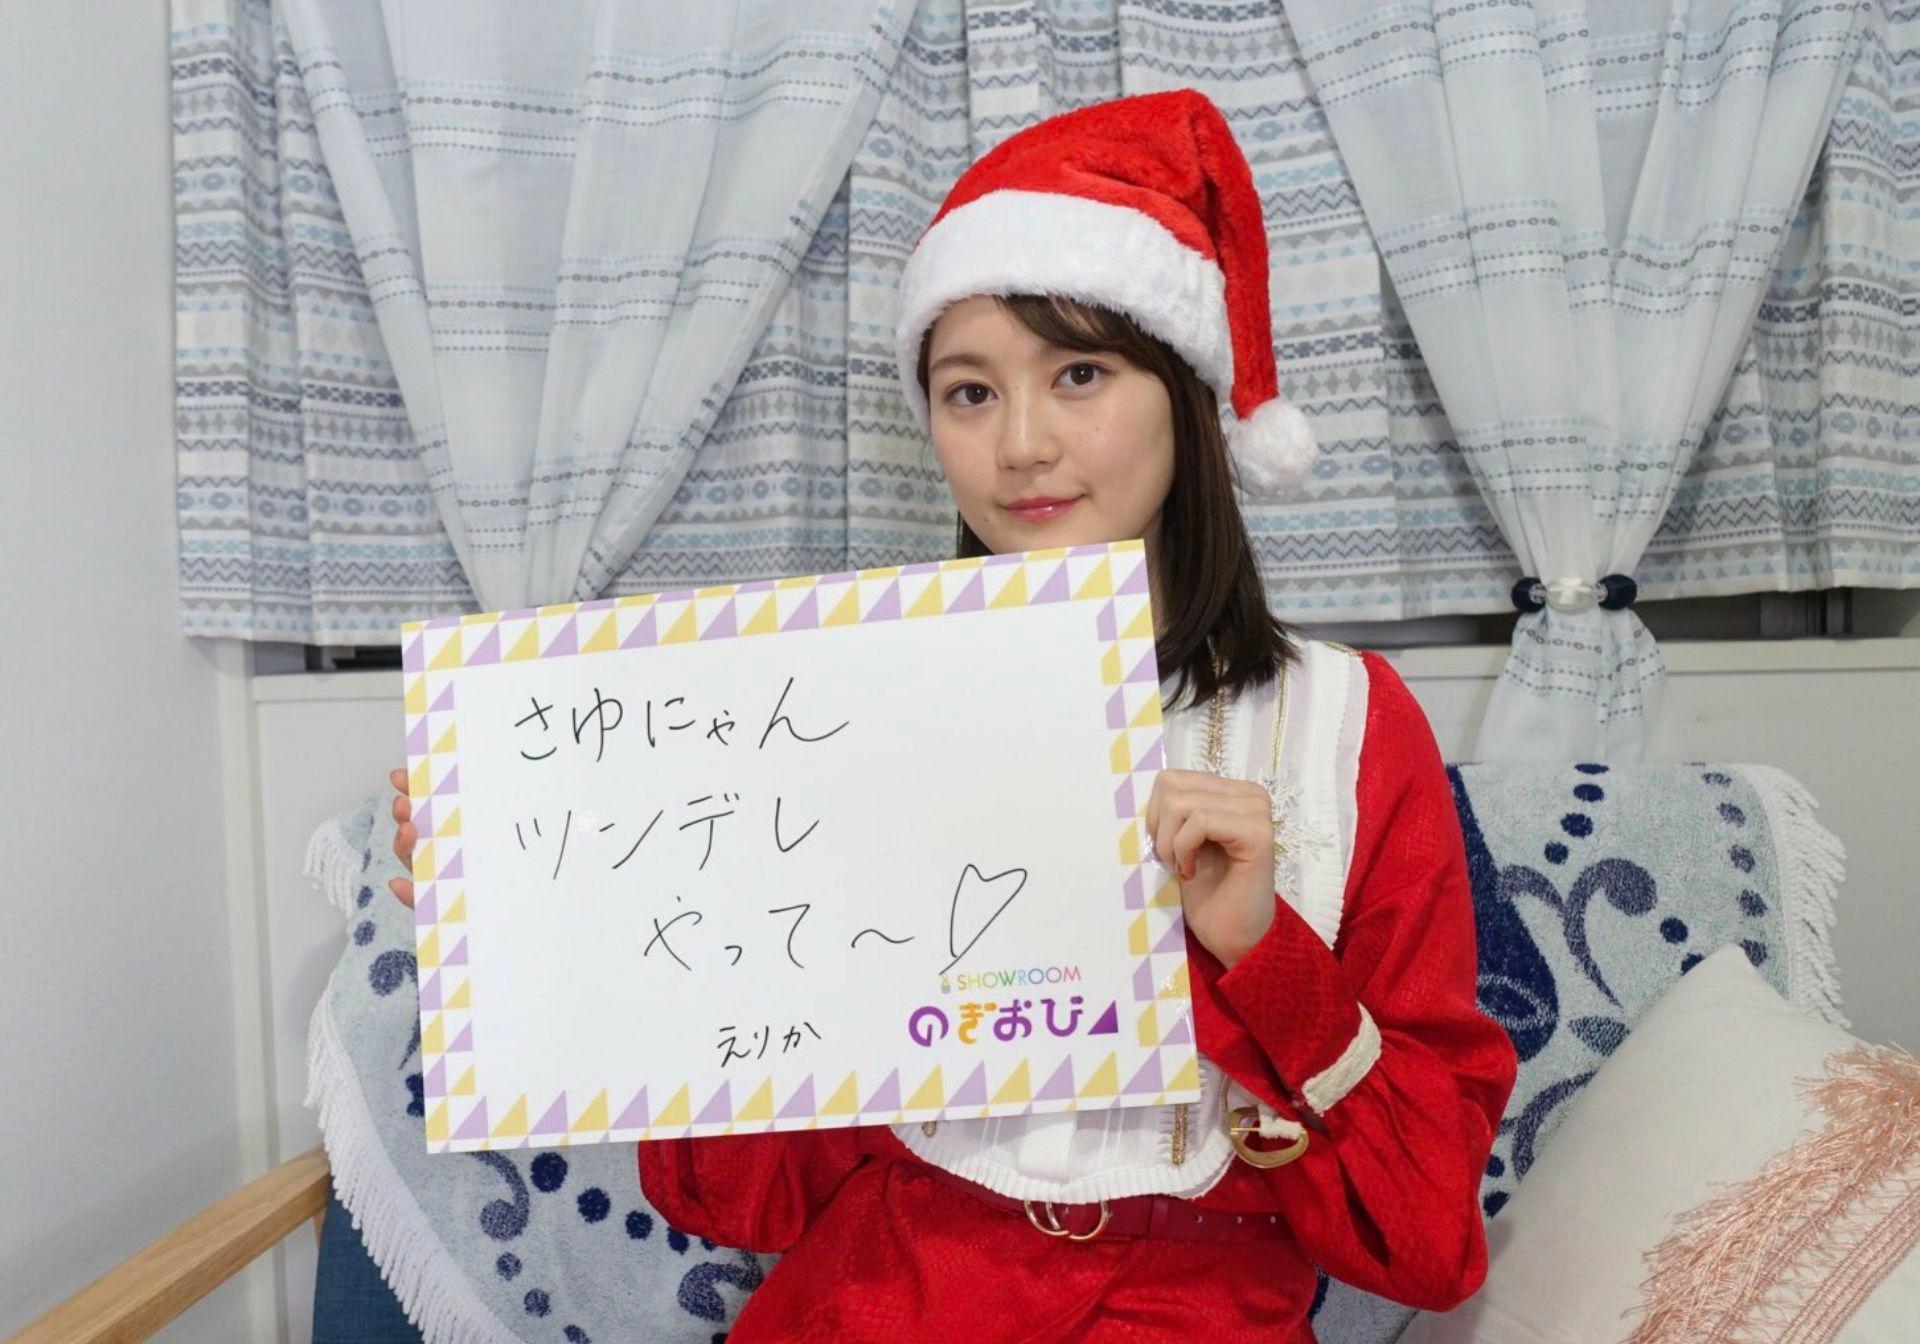 さゆにゃん
ツンデレ
やって〜♡
SHOWROOM
のぎおび
えりか